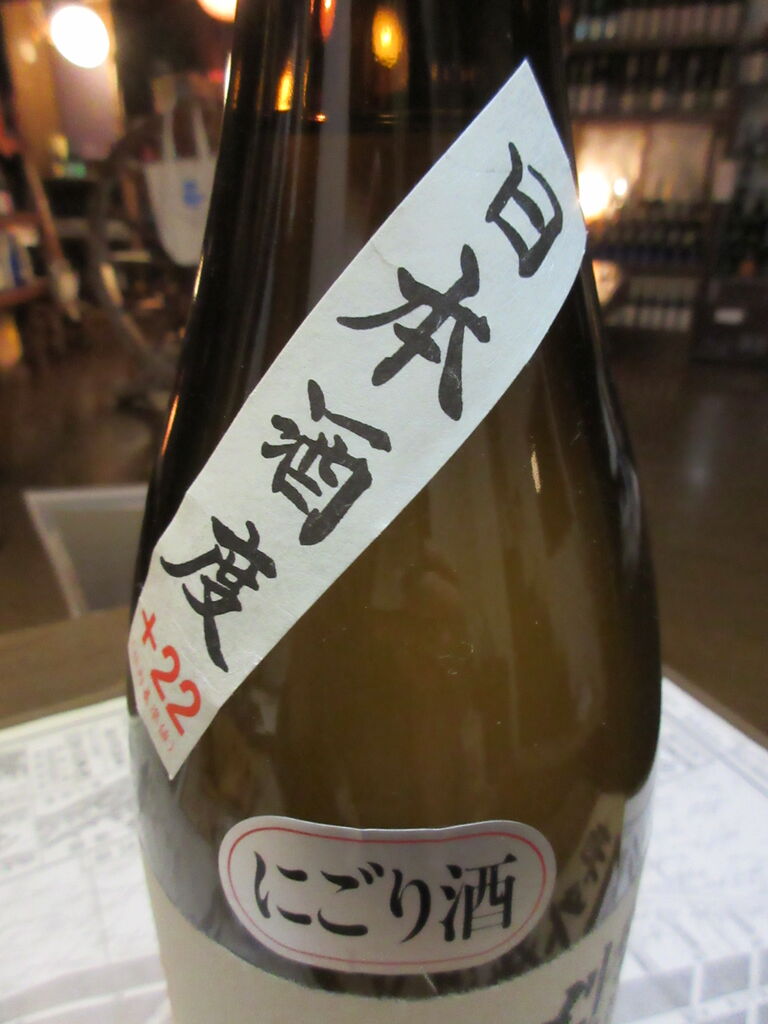 日本酒度
+22
にごり酒